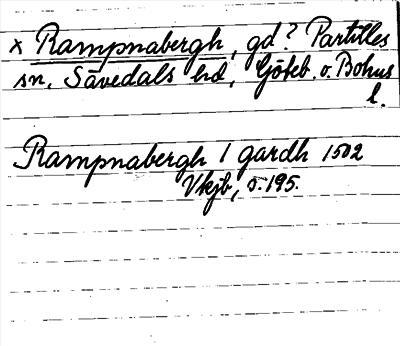 x Rampnabergh, gd? Partilles
sn. Sävedals hd, Göteb. o. Bohus
l.
Rampnabergh 1 gardh 1502
Vkjb, s. 195.